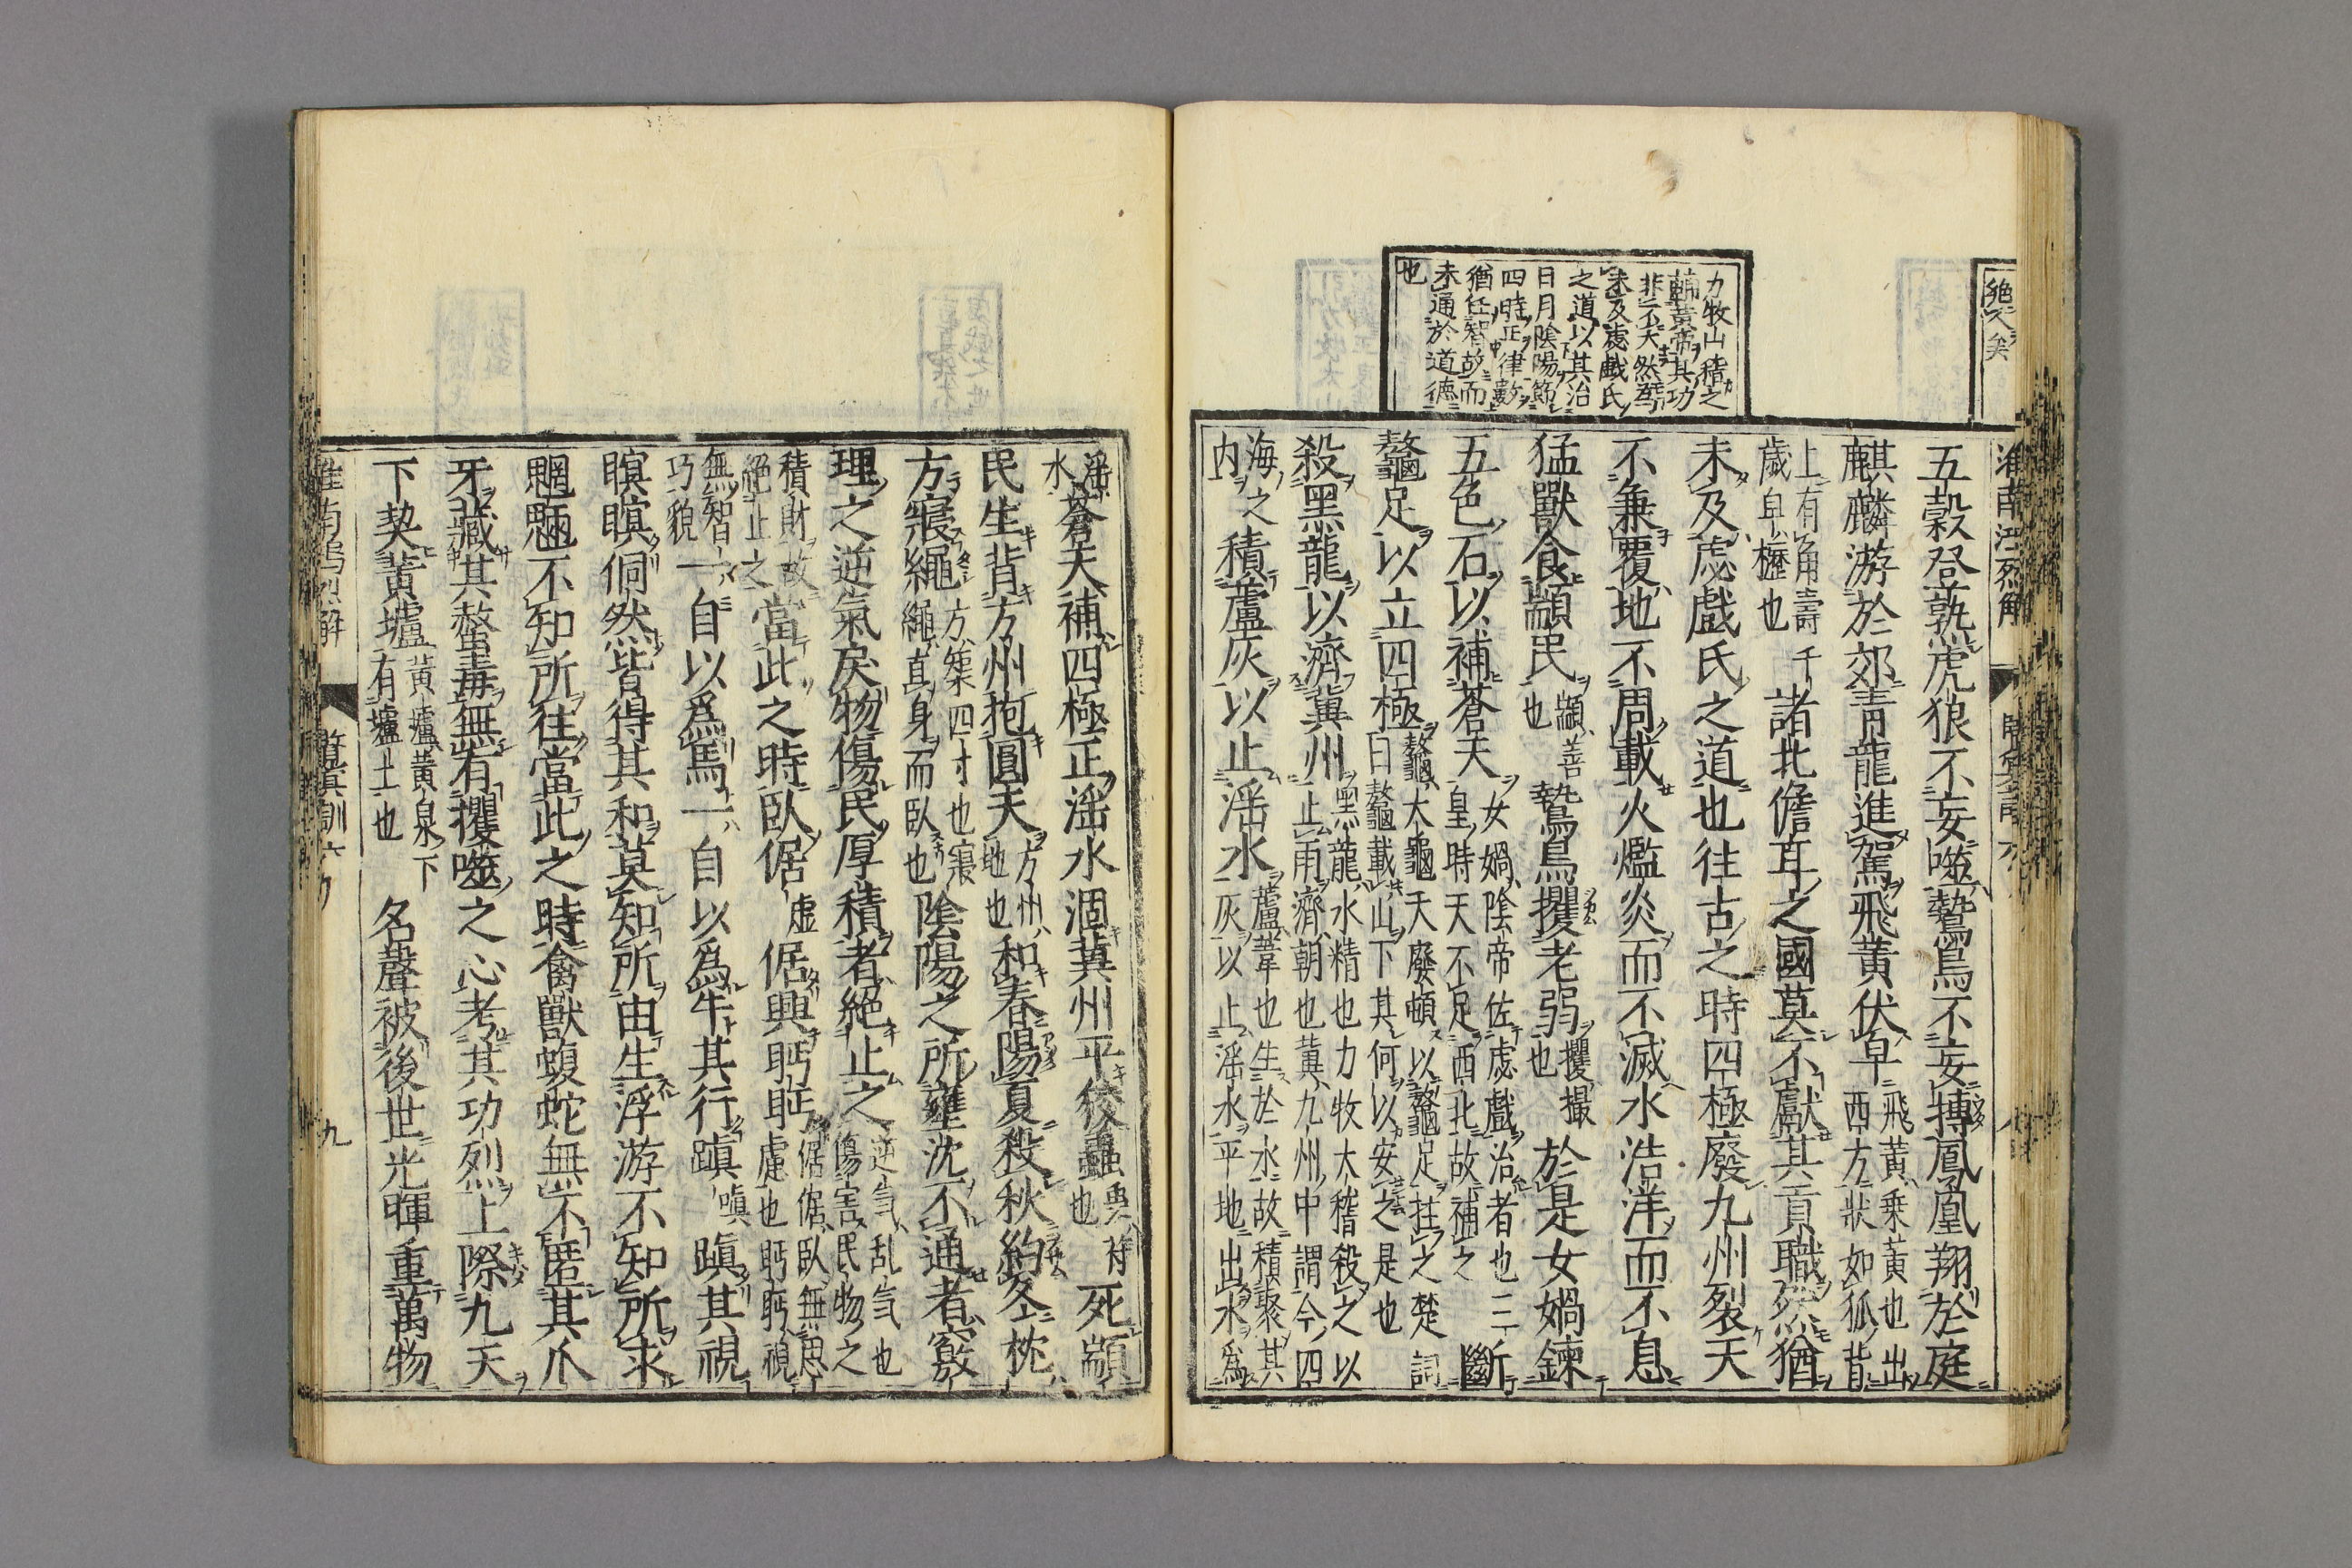 力牧山稽之
輔黃帝其功
非不大然
未及虙戲氏
之道以其治
日月陰陽節
四時正律數
猶任智故而
未通於道德
也
五穀登孰虎狼不妄噬鷙鳥不妄搏鳳凰翔於庭
麒麟游於郊青龍進駕飛黃伏皁飛黃乘黃也出西方狀如狐背
上有角壽千歲皁櫪也諸北儋耳之國莫不獻其貢職然猶
未及虙戲氏之道也往古之時四極廢九州裂天
不兼覆地不周載火爁炎而不滅水浩洋而不息
猛獸食顓民顓善也鷙鳥攫老弱攫撮也於是女媧鍊
五色石以補蒼天女媧陰帝佐虙戲治者也三皇時天不足西北故補之斷
鼇足以立四極鼇大龜天廢頓以鼇足拄之楚詞曰鼇載山下其何以安之是也
殺黑龍以濟冀州黑龍水精也力牧大稽殺之以止雨濟朝也冀九州中謂今四
海之內積蘆灰以止淫水蘆葦也生於水故積聚其灰以止淫水平地出水爲
淫水蒼天補四極正淫水涸冀州平狡蟲也死顓
民生背方州抱圓天方州地也和春陽夏殺秋約冬枕
方寢繩方榘四寸也寢繩直身而臥也陰陽之所壅沈不通者竅
理之逆氣戾物傷民厚積者絕止之逆气乱气也傷害民物之
積財故絕止之當此之時臥倨虛倨興眄眄倨倨臥無思慮也眄眄視
無智巧貌一自以爲馬一自以爲牛其行蹎蹎其視
瞑瞑侗然皆得其和莫知所由生浮游不知所求
魍魎不知所往當此之時禽獸蝮蛇無不匿其爪
牙藏其螫毒無有攫噬之心考其功烈上際九天
下契黃壚黃壚黃泉下有壚土也名聲被後世光暉重萬物
九